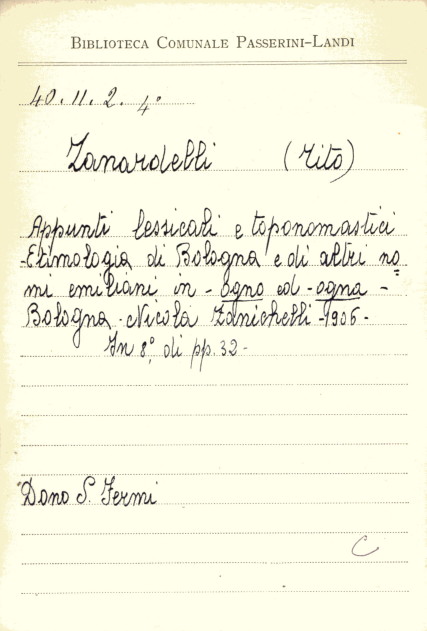 BIBLIOTECA COMUNALE PASSERINI-LANDI
40.11.2. 4°
Zanardelli (Tito)
Appunti lessicali e toponomastici
-Etimologia di Bologna e di altri no=
mi emiliani in - ogno ed - ogna -
Bologna - Nicola Zanichelli - 1906 -
In 8°, di pp. 32 -
Dono S. Fermi
C